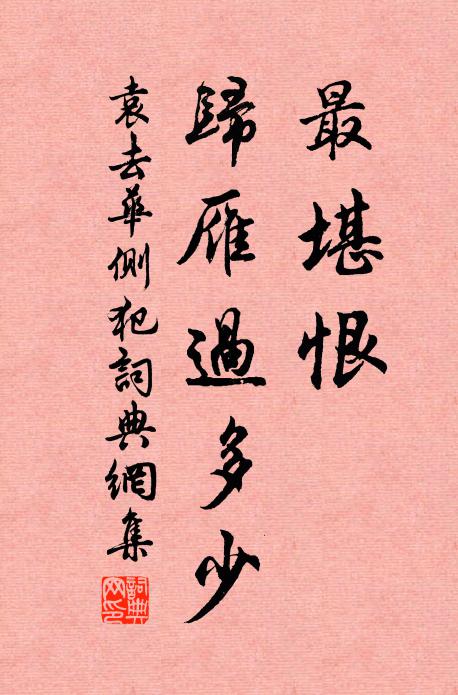 最堪恨
歸雁過多少
袁去華側犯詞典網集
詞典網印